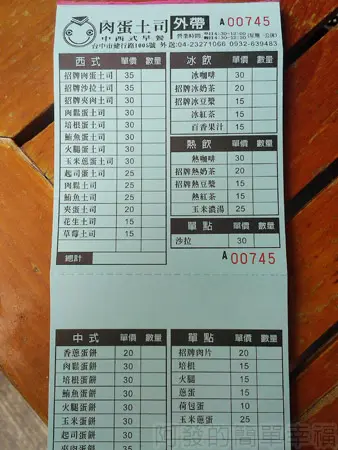 肉蛋土司 外帶 A 00745
中西式早餐
台中市健行路1005號 外送:04-23271066 0932-639483
西式 單價 數量
招牌肉蛋土司 35
招牌沙拉土司 35
招牌夾肉土司 30
肉鬆蛋土司 30
培根蛋土司 30
鮪魚蛋土司 30
火腿蛋土司 30
玉米蛋土司 30
起司蛋土司 25
肉鬆土司 25
鮪魚土司 25
夾蛋土司 20
花生土司 15
草莓土司 15
總計
冰飲 單價 數量
冰咖啡 30
招牌冰奶茶 20
招牌冰豆漿 15
冰紅茶 15
百香果汁 15
熱飲 單價 數量
熱咖啡 30
招牌熱奶茶 20
招牌熱豆漿 15
熱紅茶 15
玉米濃湯 25
單點 單價 數量
沙拉 30
A 00745
中式 單價 數量
香蔥蛋餅 20
肉鬆蛋餅 30
培根蛋餅 30
鮪魚蛋餅 30
火腿蛋餅 30
玉米蛋餅 30
起司蛋餅 30
夾肉蛋餅
單點 單價 數量
招牌肉片 20
培根 15
火腿 15
蔥蛋 15
荷包蛋 10
玉米蔥蛋 25
阿發的簡單幸福